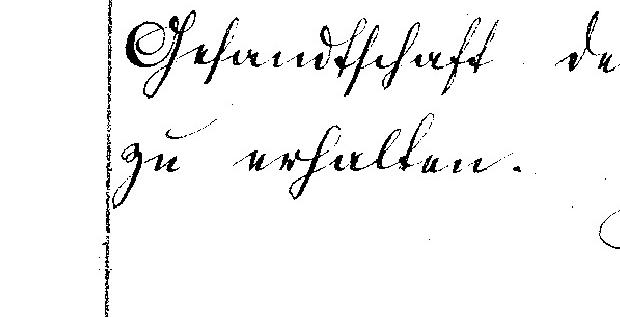 Gesandtschaft de
zu erhalten.